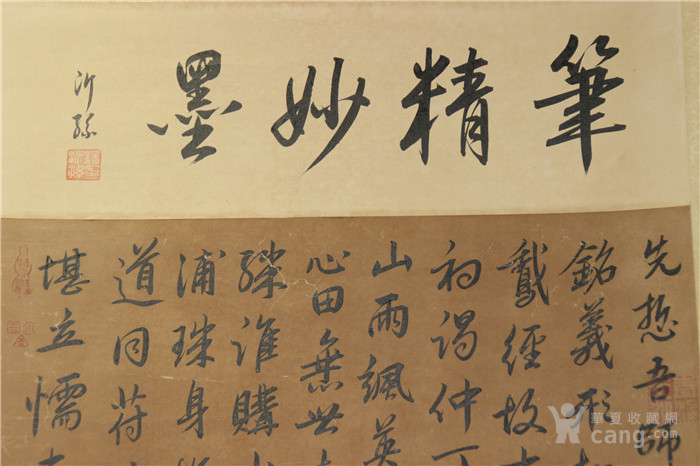 筆精妙墨
沂孫
先悊吾師
銘義形
經故
初謁仲丁
山雨颯英
心田無世
購
浦珠身
道同
堪立懦
華夏收藏網
cang.com